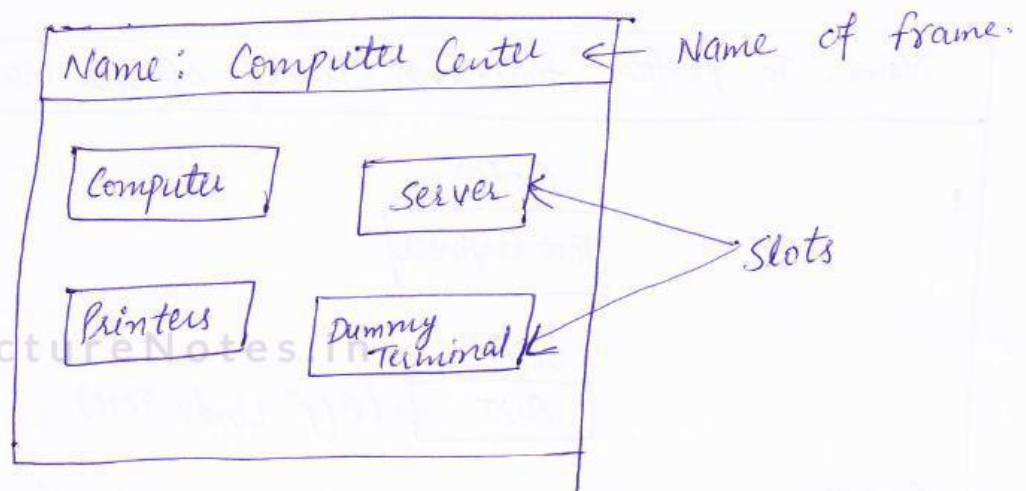 Name: Computer Center ← Name of frame.
Computer
Server
Slots
Printers
Dummy
Terminal
ctureNotes.in